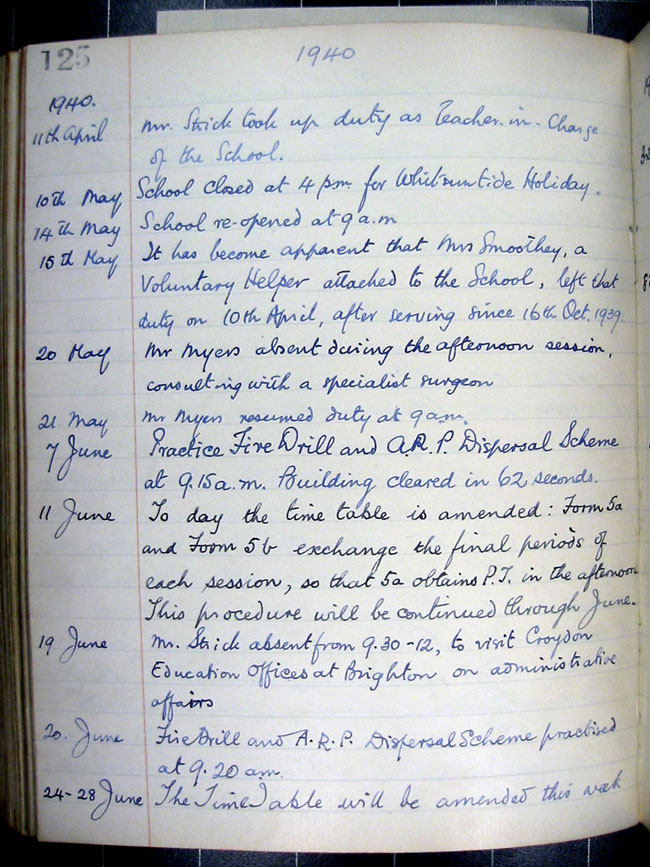 125
1940
1940.
11th April Mr. Strick took up duty as Teacher-in-Charge
of the School.
10th May School closed at 4 pm. for Whitsuntide Holiday.
14th May School re-opened at 9 a.m
15th May It has become apparent that Mrs Smoothey, a
Voluntary Helper attached to the School, left that
duty on 10th April, after serving since 16th Oct. 1939.
20 May Mr Myers absent during the afternoon session,
consulting with a specialist surgeon
21 May Mr Myers resumed duty at 9 a.m.
7 June Practice Fire Drill and A.R.P. Dispersal Scheme
at 9.15 a.m. Building cleared in 62 seconds.
11 June To day the time table is amended: Form 5a
and Form 5b exchange the final periods of
each session, so that 5a obtains P.T. in the afternoon
This procedure will be continued through June.
19 June Mr. Strick absent from 9.30-12, to visit Croydon
Education Offices at Brighton on administrative
affairs
20. June Fire Drill and A.R.P. Dispersal Scheme practised
at 9.20 am.
24-28 June The Time Table will be amended this week